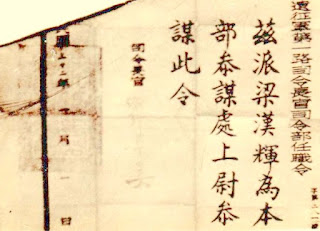 遠征軍第一路司令長官司令部任職令
茲派梁漢輝為本
部參謀處上尉參
謀此令
司令長官